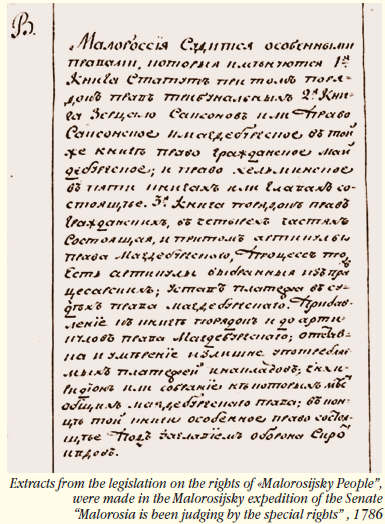 В.
Малороссія Судится особенными
правами, которыя имѣнуются 1я
Книга Статутъ при томъ поря-
докъ правъ трибунальныхъ 2я Кни-
га Зерцало Саксоновъ или Право
Саксонское и магдебургское въ той
же книгѣ право гражданское май
дебургское; и право хельминское
въ пяти книгахъ или Главахъ со-
стоящье. 3я Книга порядокъ правъ
Гражданскихъ, въ четырехъ частяхъ
Состоящая, и притомъ артикулы
права Магдебургскаго, Процессъ то
Есть артикулы выбранныя изъ пра
цесарскихъ; Уставъ платежа въ су-
дѣхъ права магдебургскаго. Прибав-
леніе къ книгѣ порядокъ и до арти
куловъ права Магдебургскаго;
на и умѣреніе излишне употребляе
мыхъ платежей и накладовъ;
или собраніе нѣкоторыхъ
общихъ магдебургскаго права; въ кон-
цѣ той книги особенное право состоя-
щье Подъ Заглавіемъ оборона Сиро
индовъ.
Extracts from the legislation on the rights of «Malorosijsky People”,
were made in the Malorosijsky expedition of the Senate
“Malorosia is been judging by the special rights” , 1786